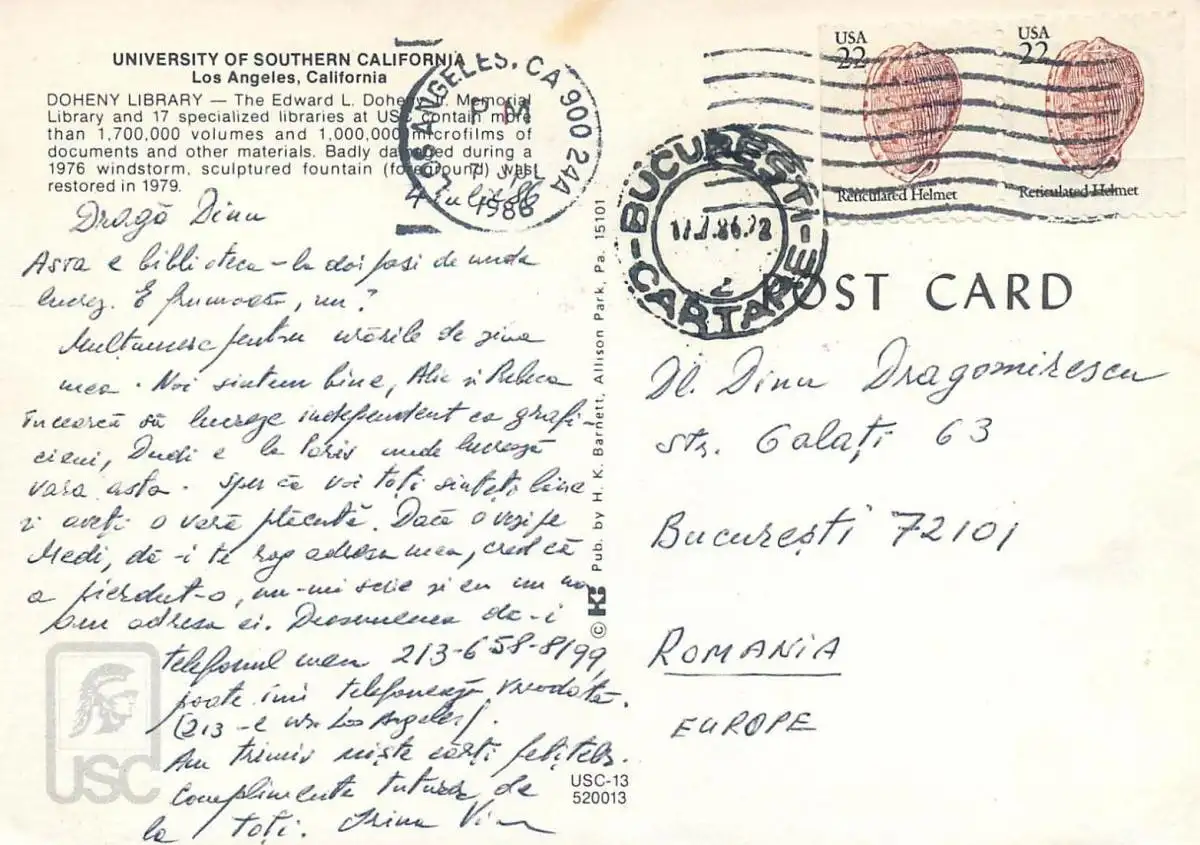 UNIVERSITY OF SOUTHERN CALIFORNIA
Los Angeles, California
DOHENY LIBRARY — The Edward L. Doheny Jr. Memorial
Library and 17 specialized libraries at USC contain more
than 1,700,000 volumes and 1,000,000 microfilms of
documents and other materials. Badly damaged during a
1976 windstorm, sculptured fountain (foreground) was
restored in 1979.
LOS ANGELES, CA 900 24A
PM
7 JUL
1986
USA
22
Reticulated Helmet
USA
22
Reticulated Helmet
BUCUREȘTI-
CARTARE
4 iulie 86
Dragă Dinu
Asta e biblioteca – la doi pași de unde
lucrez. E frumoasă, nu?
Mulțumesc pentru urările de ziua
mea. Noi sintem bine, Alu și Rebeca
încearcă să lucreze independent ca grafi-
cieni, Dudi e la Paris unde lucrează
vara asta. Sper că voi toți sinteți bine
și aveți o vară plăcută. Dacă o vezi pe
Medi, dă-i te rog adresa mea, cred că
a pierdut-o, nu-mi scie și eu nu
am adresa ei. Deasemenea dă-i
telefonul meu 213-658-8199,
poate îmi telefonează vreodată.
(213 – e Los Angeles).
Am trimis niște cărți fetițelor.
Complimente tuturor de
la toți. Irina
POST CARD
Dl. Dinu Dragomirescu
str. Galați 63
București 72101
ROMANIA
EUROPE
© Pub. by H. K. Barnett, Allison Park, Pa. 15101
USC-13
520013
USC